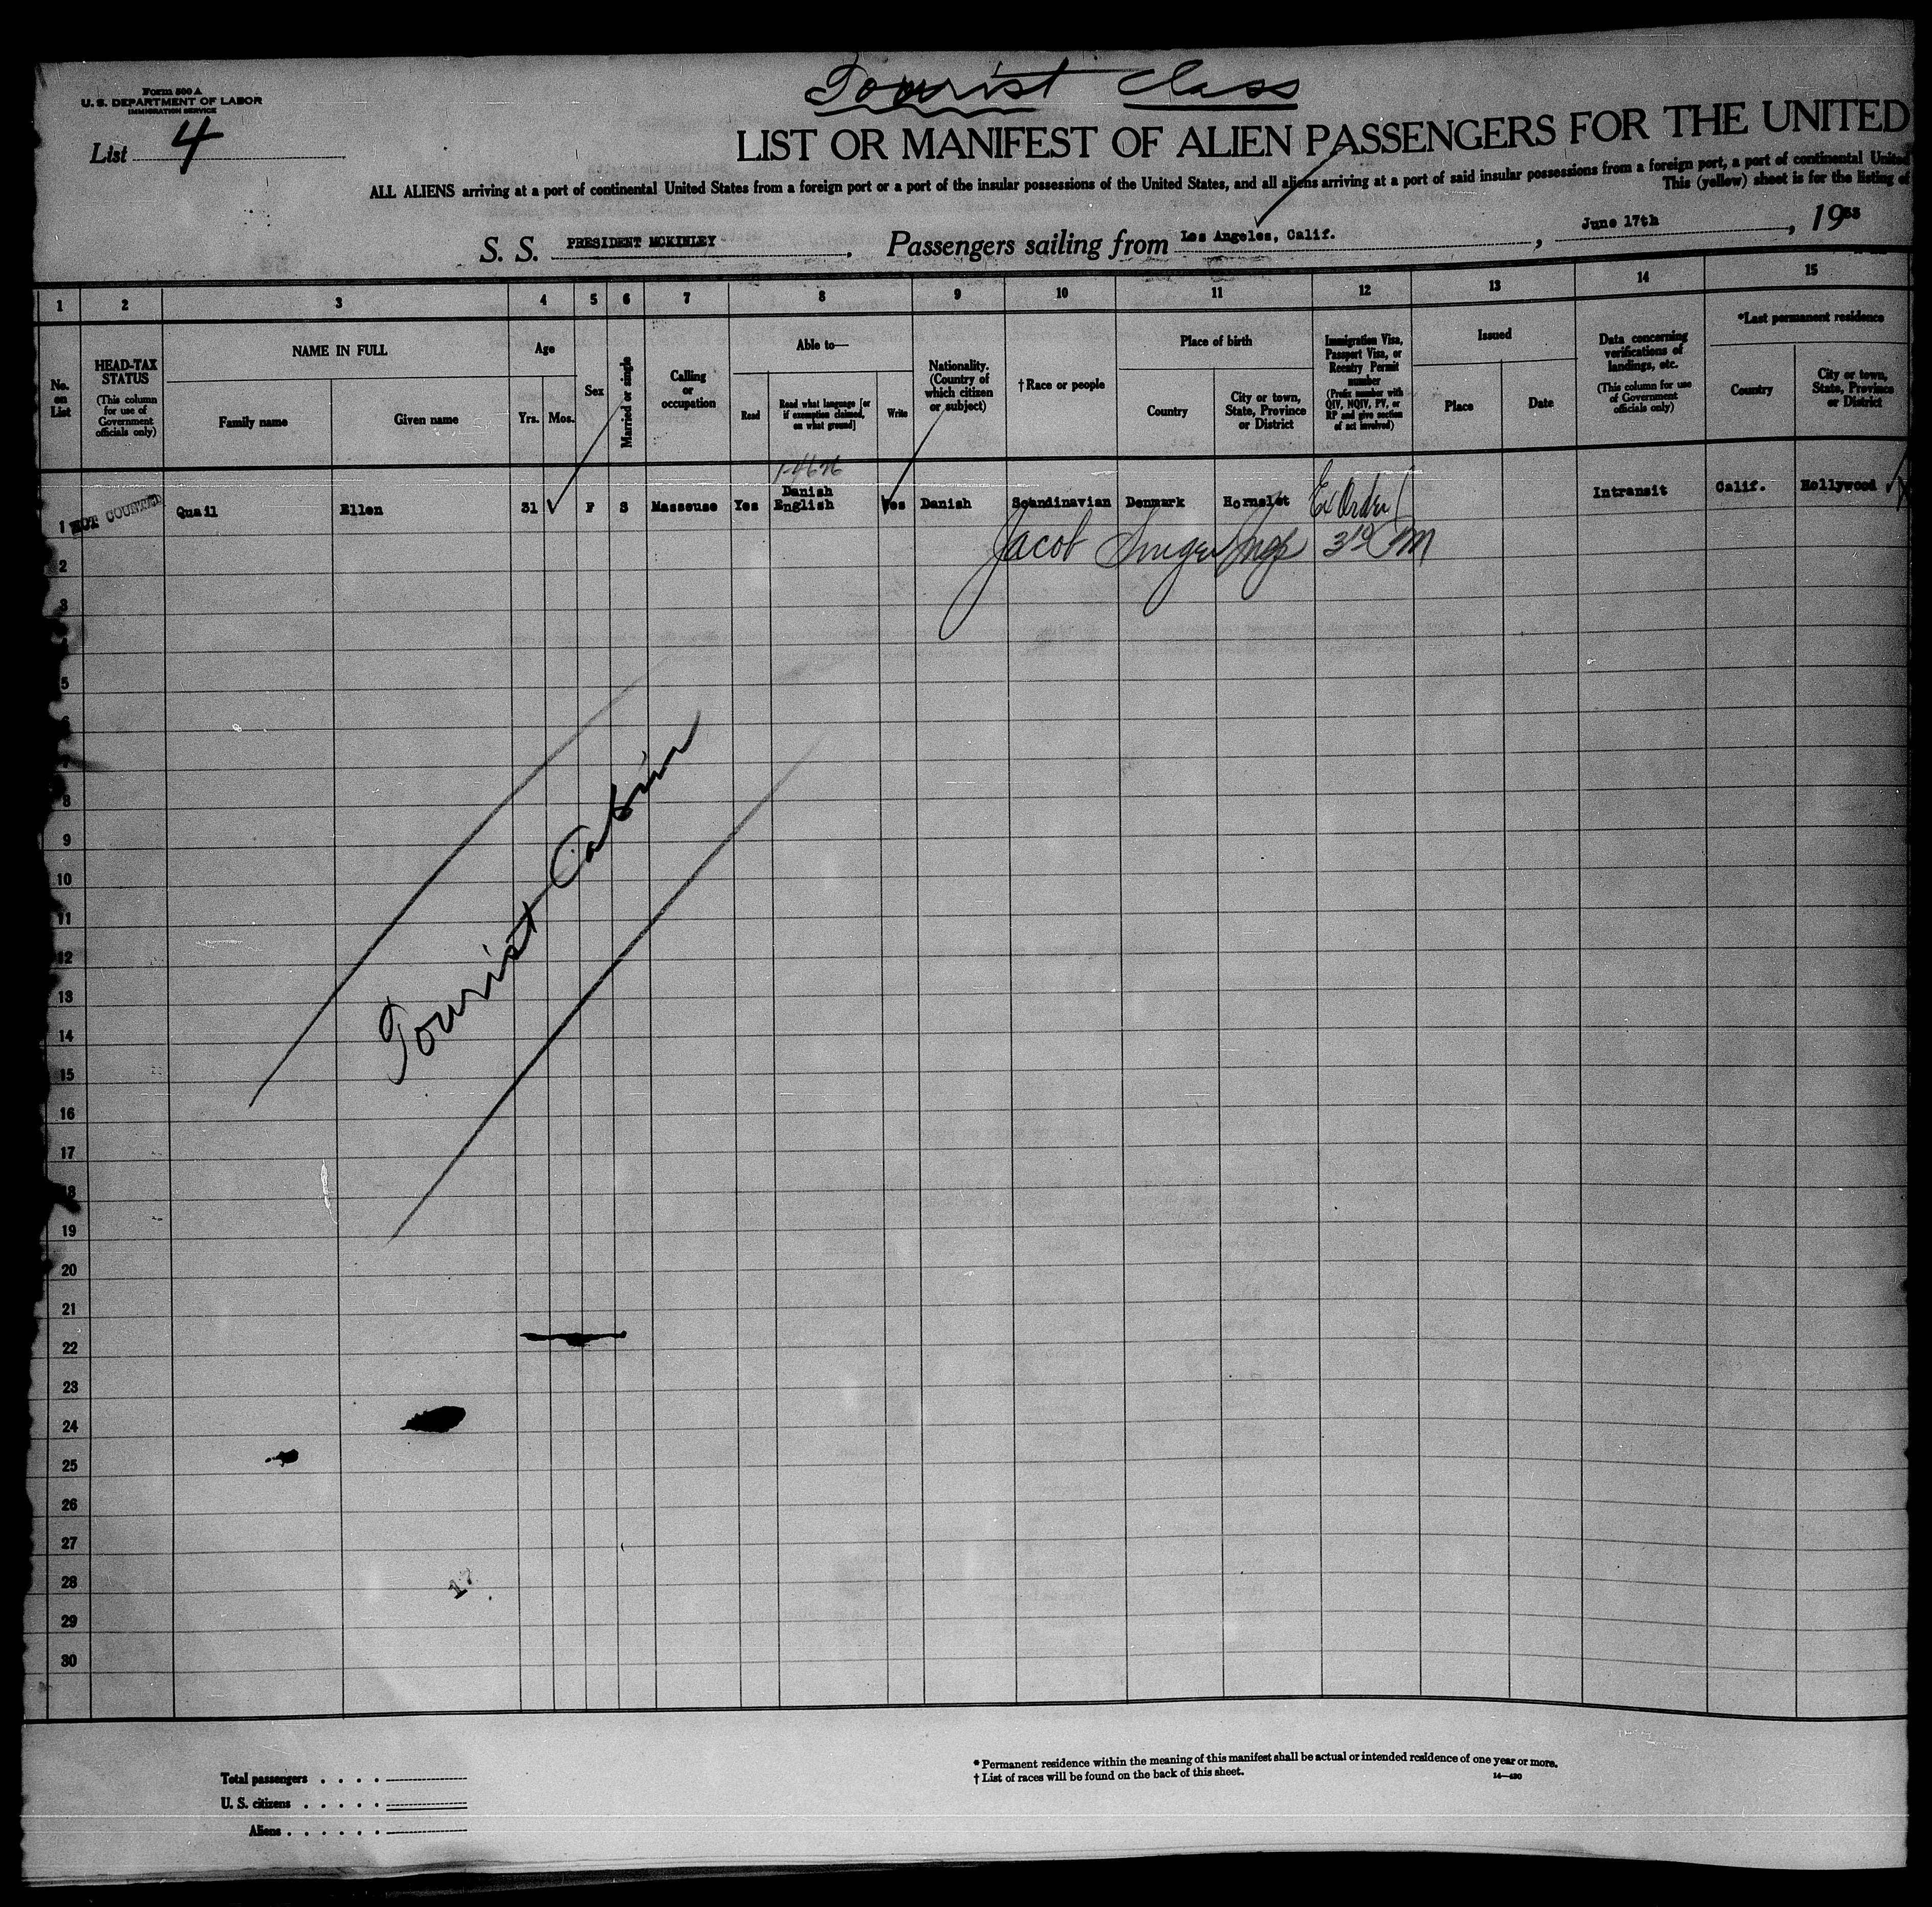 Tourist Class
Form 500 A
U. S. DEPARTMENT OF LABOR
IMMIGRATION SERVICE
List 4
LIST OR MANIFEST OF ALIEN PASSENGERS FOR THE UNITED
ALL ALIENS arriving at a port of continental United States from a foreign port or a port of the insular possessions of the United States, and all aliens arriving at a port of said insular possessions from a foreign port, a port of continental United
This (yellow) sheet is for the listing of
S. S. PRESIDENT MCKINLEY, Passengers sailing from Los Angeles, Calif., June 17th, 19
1 2 3 4 5 6 7 8 9 10 11 12 13 14 15
No. on List
HEAD-TAX STATUS
(This column for use of Government officials only)
NAME IN FULL
Family name
Given name
Age
Yrs.
Mos.
Sex
Married or single
Calling or occupation
Able to—
Read
Read what language [or if exemption claimed, on what ground]
Write
Nationality. (Country of which citizen or subject)
† Race or people
Place of birth
Country
City or town, State, Province or District
Immigration Visa, Passport Visa, or Reentry Permit number
(Prefix number with QIV, NQIV, PV, or RP and give section of act involved)
Issued
Place
Date
Data concerning verifications of landings, etc.
(This column for use of Government officials only)
*Last permanent residence
Country
City or town, State, Province or District
1 NOT COUNTED Quail Ellen 31 F S Masseuse Yes Danish English Yes Danish Scandinavian Denmark Hornslet Ex Order Intransit Calif. Hollywood
Jacob Insp 3 10 PM
2
3
5
8
9
10
11
12
13
14
15
16
17
19
20
21
22
23
24
25
26
27
28
29
30
Tourist Cabin
17
Total passengers
U. S. citizens
Aliens
* Permanent residence within the meaning of this manifest shall be actual or intended residence of one year or more.
† List of races will be found on the back of this sheet.
14—430